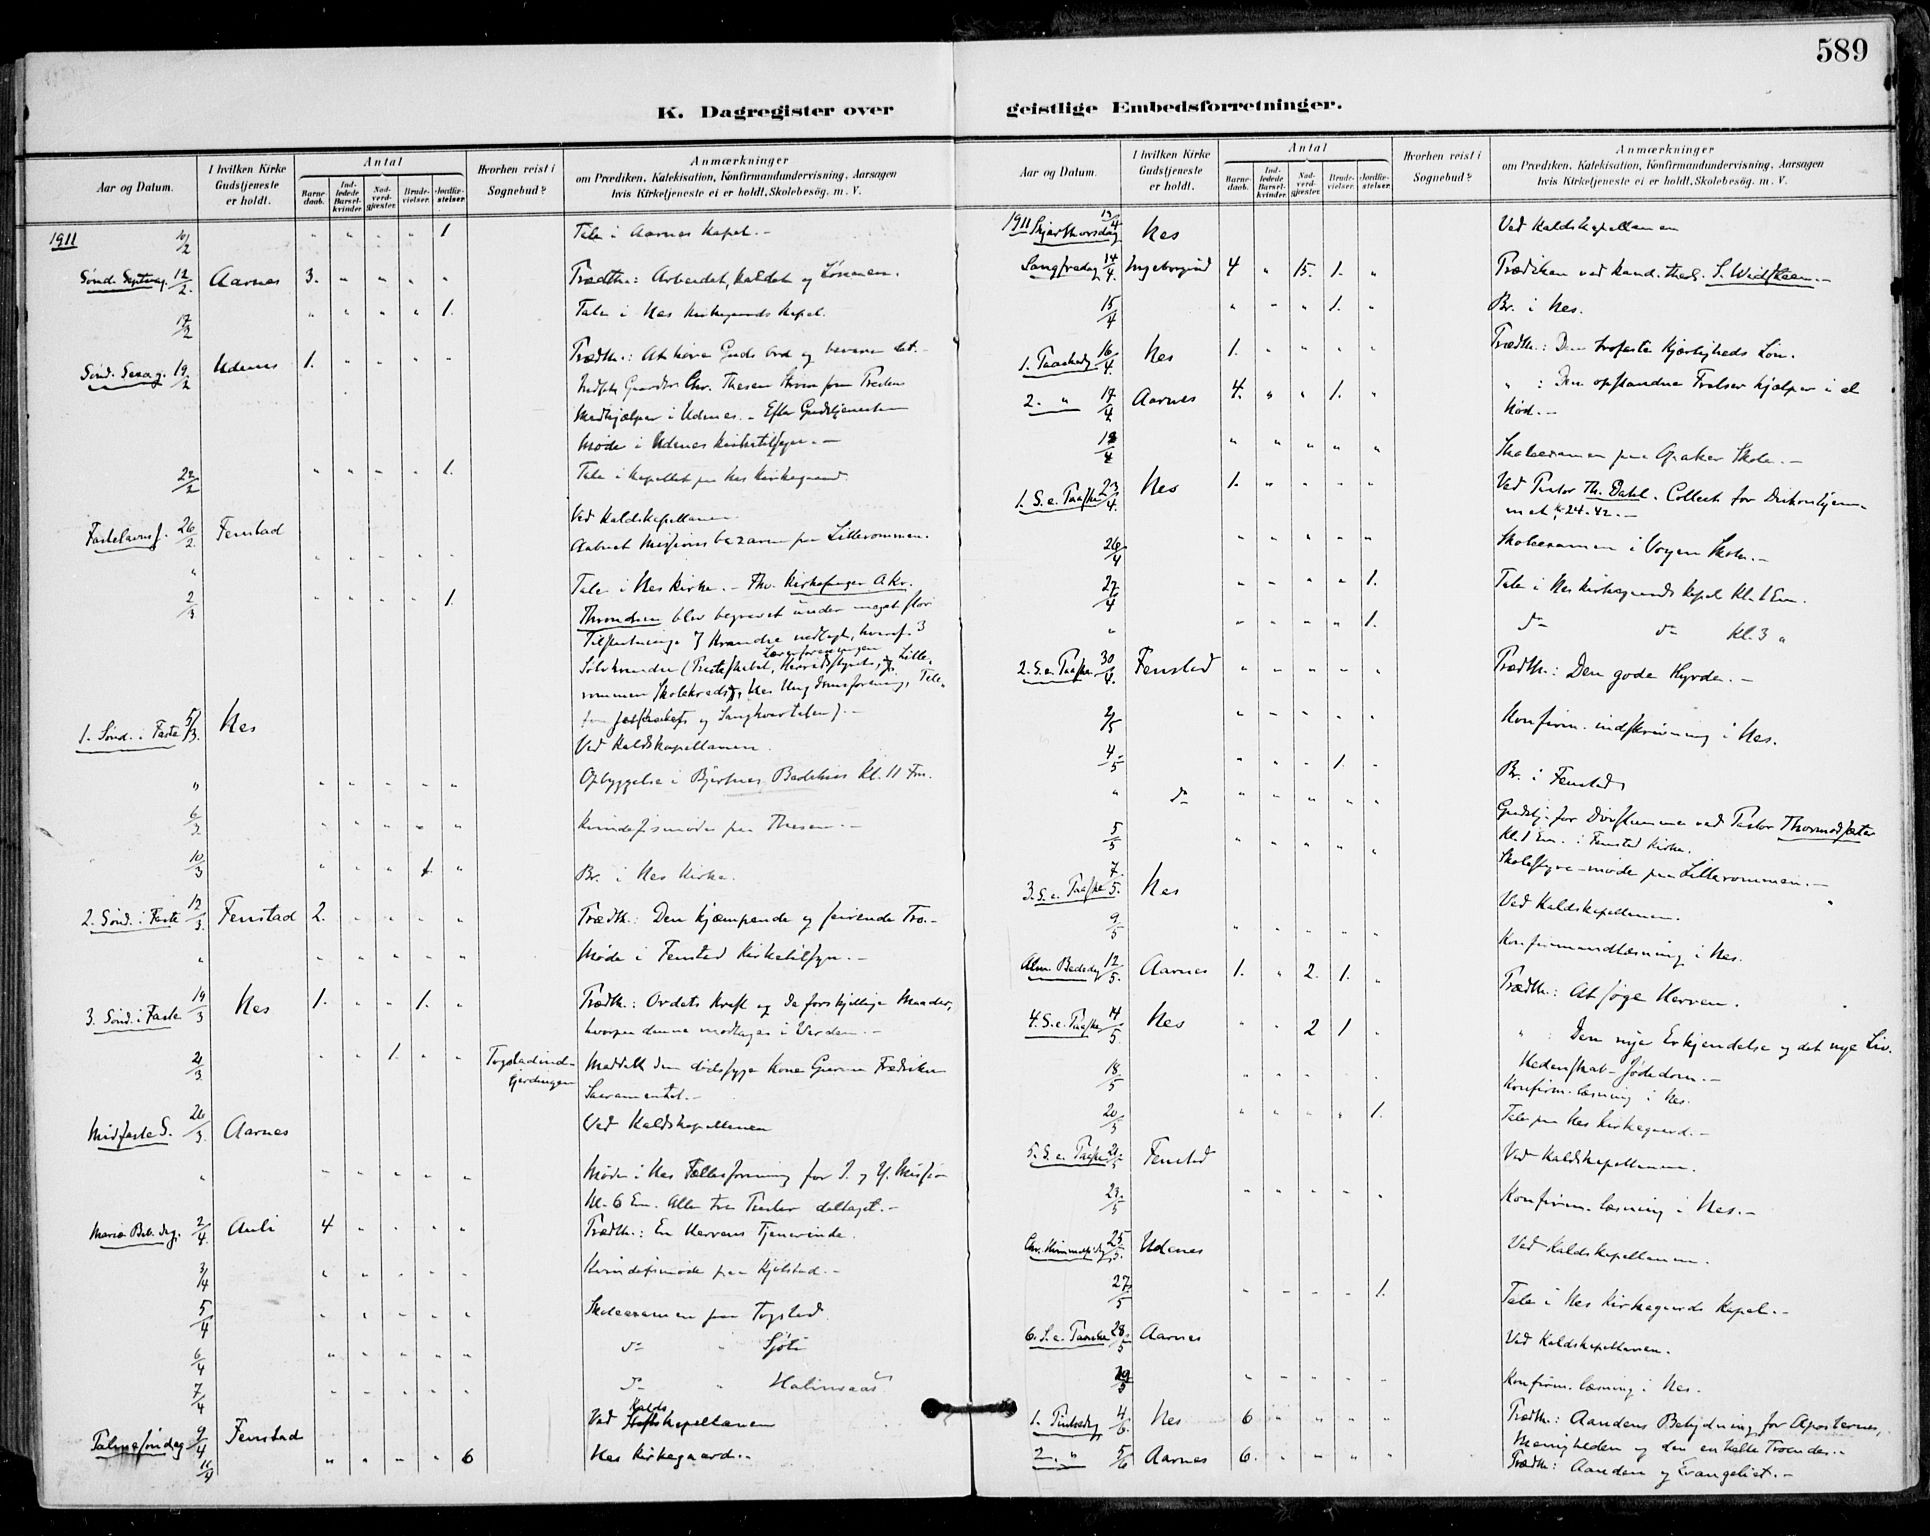 589
K. Dagregister over geistlige Embedsforretninger.
Aar og Datum. I hvilken Kirke Gudstjeneste er holdt. Antal Barnedaab. Indledede Barselkvinder. Nadverdgjæster. Brudevielser. Jordfæstelser. Hvorhen reist i Sognebud? Anmærkninger om Prædiken, Katekisation, Konfirmandundervisning, Aarsagen hvis Kirketjeneste ei er holdt, Skolebesög. m. V.
1911 10/2 " " " " 1 Tale i Aarnes Kapel.-
Sønd. Septuag. 12/2. Aarnes 3. " " " " Prædth: Arbeidet, Kaldet og Lønnen.
17/2 " " " " 1. Tale i Nes Kirkegaards Kapel.
Sønd. Sexag. 19/2 Udenes 1. " " " " Prædth.: At høre Guds Ord og bevare det.-
Chr. Thesen
Medhjælper i Udenes. - Efter Gudstjenesten
Møde i Udenes Kirketilsyn. -
22/2 " " " " 1. Tale i Kapellet paa Nes Kirkegaard.
Fastelavns s. 26/2 Fenstad Ved Kaldskapellanen.
" " " " " " Aabnet Missionsbazaren paa Lillerommen.
2/3 " " " " 1. Tale i Nes Kirke. - Fhv. Kirkesanger A. Kr.
Throndsen blev begravet under meget stor
Tilslutning. 7 Krandse nedlagt, hvoraf 3
Sølvkrandse (Præsteskabet, Herredsstyret, Lærerforeningen, Lille-
rommen Skolekreds, Nes Ungdomsforening, Tele-
fonselskabet og Sangkvartetten). -
1. Sønd. i Faste 5/3. Nes Ved Kaldskapellanen.
" " " " " " Opbyggelse i Bjertnes Bedehus Kl. 11 Fm.
6/3 " " " " " Kvindefsmøde paa Thesen. -
10/3 " " " 1. " Br. i Nes Kirke.
2. Sønd. i Faste 12/3. Fenstad 2. " " " " Prædth.: Den kjæmpende og seirende Tro.-
" " " " " " Møde i Fenstad Kirketilsyn. -
3. Sønd. i Faste 19/3 Nes 1. " " 1. " Prædth.: Ordets Kraft og de forskjellige Maader,
hvorpaa denne modtages i Verden. -
21/3. " " 1. " " Togstadind- Gjerdingen Meddelt den dødssyge Kone
Sacramentet.-
Midfaste S. 26/3. Aarnes Ved Kaldskapellanen
" " " " " " Møde i Nes Fællesforening for I. og Y. Mission
Kl. 6 Em. Alle tre Prester deltaget.-
Mariæ Beb. dag. 2/4. Auli 4 " " " " Prædth.: En Herrens Tjenerinde.
3/4 " " " " " Kvindefsmøde paa Kjølstad.-
5/4 " " " " " Skoleexamen paa Togstad.
6/4 " " " " " do " Sjøli
7/4 " " " " " do "
Palmesøndag 9/4 Fenstad Ved Kaldskapellanen
11/4 " " " " 6 Nes Kirkegaard.-
Aar og Datum. I hvilken Kirke Gudstjeneste er holdt. Antal Barnedaab. Indledede Barselkvinder. Nadverdgjæster. Brudevielser. Jordfæstelser. Hvorhen reist i Sognebud? Anmærkninger om Prædiken, Katekisation, Konfirmandundervisning, Aarsagen hvis Kirketjeneste ei er holdt, Skolebesög. m. V.
1911 Skjærthorsdag 13/4 Nes Ved Kaldskapellanen
Langfredag 14/4. Ingeborgrud 4 " 15. 1. " Prædiken ved kand. theol. S. Widsteen.-
15/4 " " " 1. " Br. i Nes.
1. Paaskedg 16/4. Nes 1. " " " " Prædth.: Den trofaste Kjærligheds Løn.
2. " 17/4 Aarnes 4. " " 1. " " : Den opstandne Frelser hjælper i al
Nød.-
18/4 " " " " " Skoleexamen paa Skole.-
1. S. e. Paaske 23/4. Nes 1. " " " " Ved Pastor Th. Dahl. Collect for Diakonhjem-
met, kr 24.42.-
26/4 " " " " " Skoleexamen i Skole.-
27/4 " " " " 1. Tale i Nes Kirkegaards Kapel Kl. 1 Em.
" " " " " 1. do do Kl. 3 "
2. S. e. Paaske 30/4. Fenstad " " " " " Prædth.: Den gode Hyrde.-
2/5 " " " " " Konfirm. indskrivning i Nes.
4/5 " " " 1. " Br. i Fenstad
" do " " " " " Gudstj. for Døvstumme ved Pastor Thormodsæter
Kl. 1 Em. i Fenstad Kirke.
5/5 " " " " " Skolestyre-møde paa Lillerommen.-
3. S. e. Paaske 7/5. Nes Ved Kaldskapellanen.
9/5 " " " " " Konfirmandlæsning i Nes.
Alm. Bededag 12/5. Aarnes 1. " 2. 1. " Prædth.: At søge Herren.
4. S. e. Paaske 14/5. Nes " " 2 1. " " : Den nye Erkjendelse og det nye Liv.
Hedenskab - Jødedom.-
18/5 " " " " " Konfirm. læsning i Nes.
20/5 " " " " 1. Tale paa Nes Kirkegaard.-
5. S. e. Paaske 21/5 Fenstad Ved Kaldskapellanen.
23/5 " " " " " Konfirm. læsning i Nes.-
Chr. Himmelf. dg 25/5. Udenes Ved Kaldskapellanen.
27/5 " " " " 1. Tale i Nes Kirkegaards Kapel.-
6. S. e. Paaske 28/5 Aarnes Ved Kaldskapellanen.
29/5 " " " " " Konfirm. læsning i Nes.
1. Pintsedg 4/6. Nes 6 " " " " Prædth.: Aandens Betydning for Apostlerne,
Menigheden og den enkelte Troende.-
2. " 5/6 Aarnes 6. " " " " Prædth: Aanden og Evangeliet.-